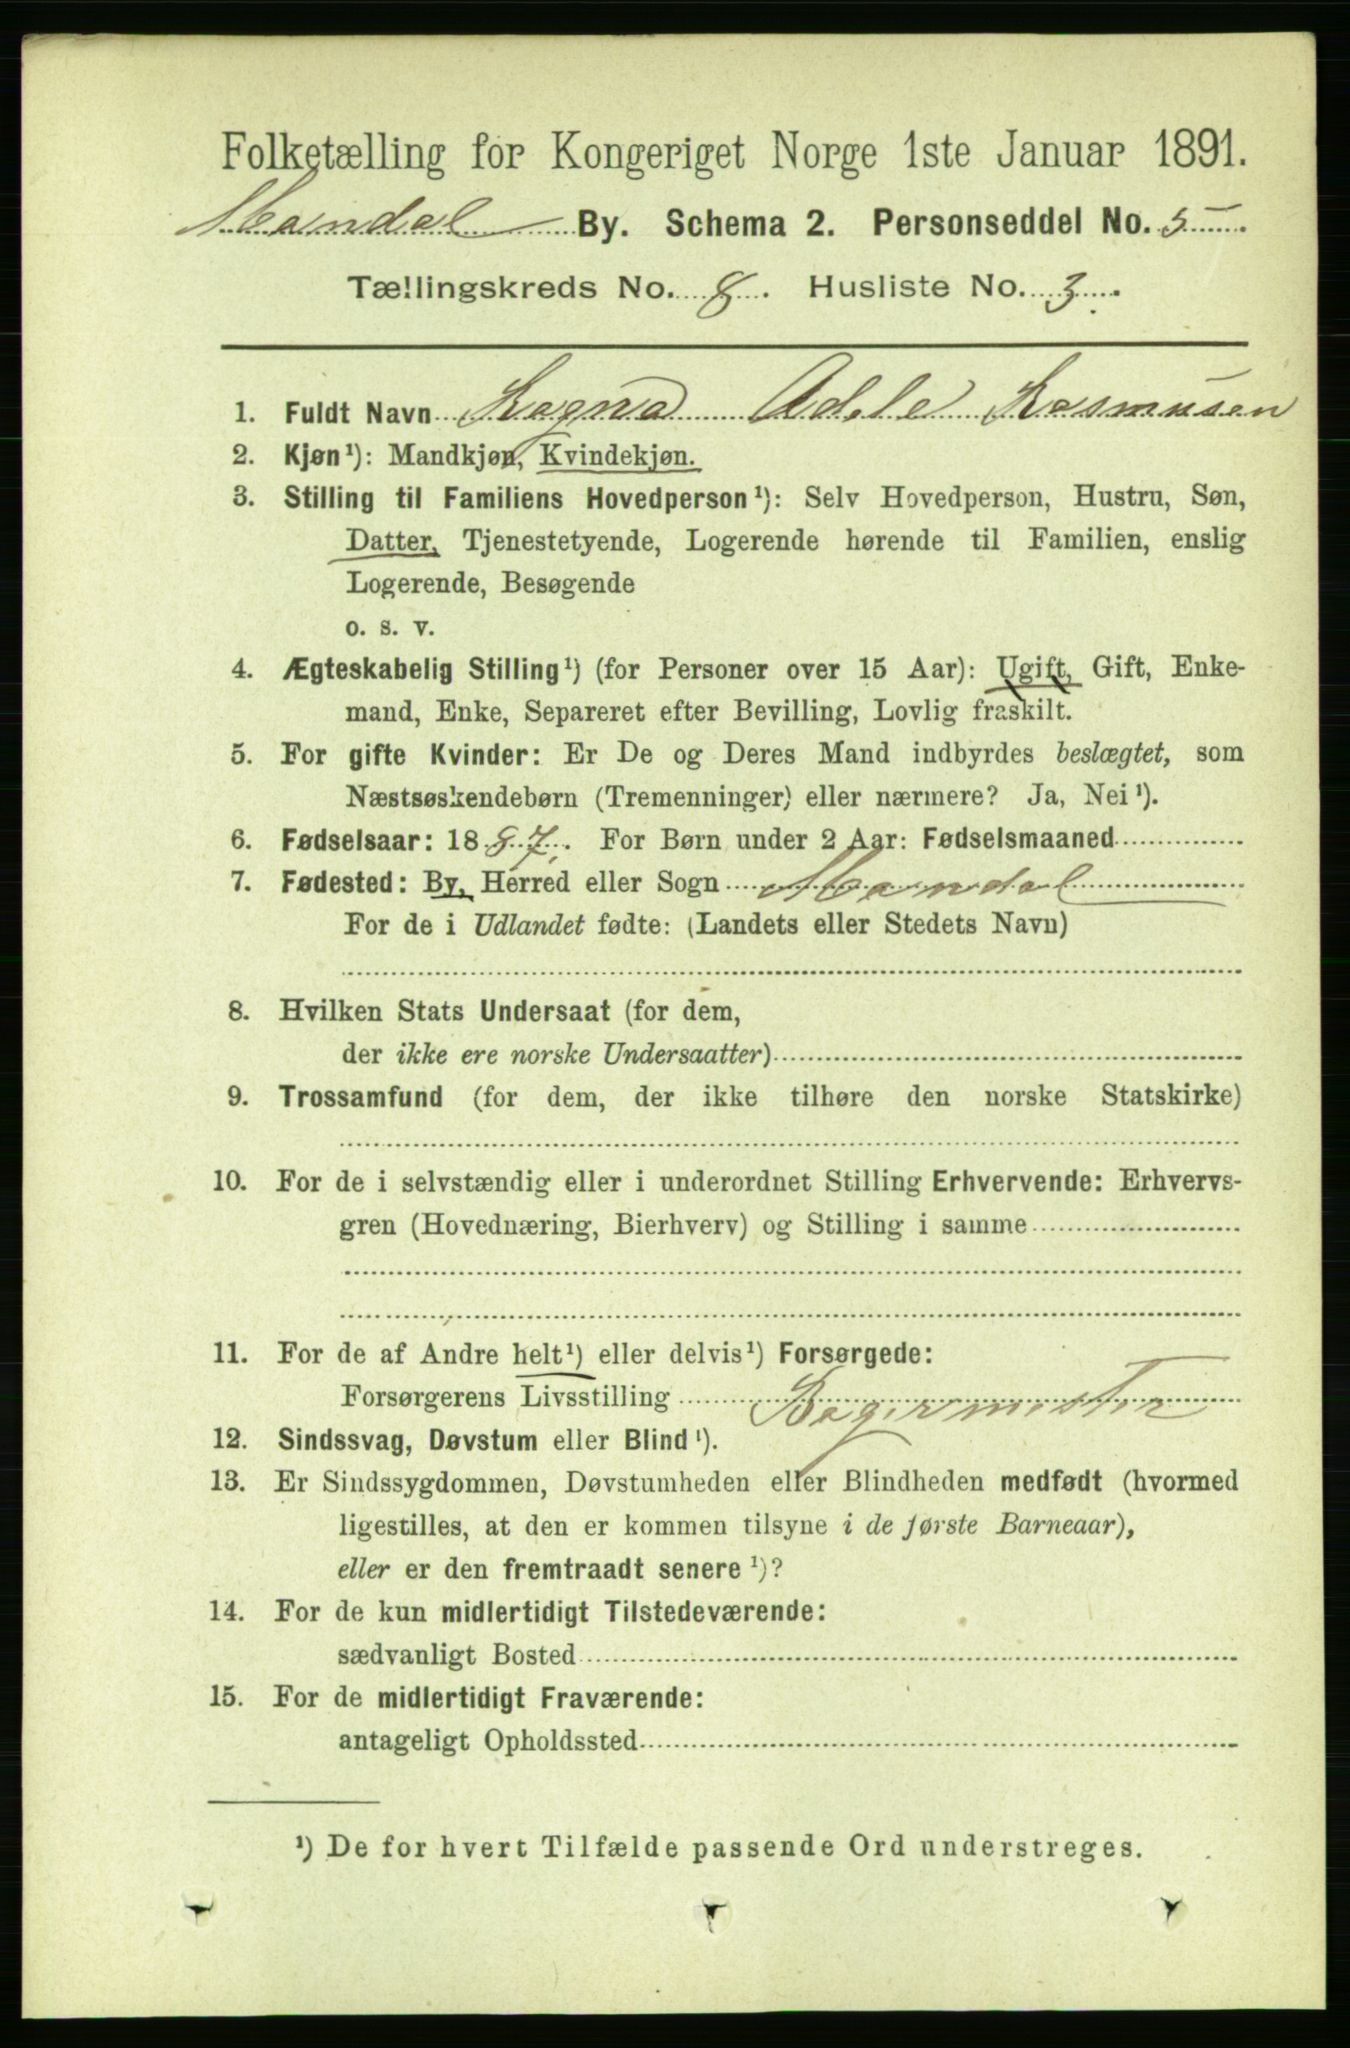 Folketælling for Kongeriget Norge 1ste Januar 1891.
Mandal By. Schema 2. Personseddel No. 5
Tællingskreds No. 8. Husliste No. 3.
1. Fuldt Navn Ragna Adele Rasmusen
2. Kjøn¹): Mandkjøn, Kvindekjøn.
3. Stilling til Familiens Hovedperson¹): Selv Hovedperson, Hustru, Søn,
Datter, Tjenestetyende, Logerende hørende til Familien, enslig
Logerende, Besøgende
o. s. v.
4. Ægteskabelig Stilling¹) (for Personer over 15 Aar): Ugift, Gift, Enke-
mand, Enke, Separeret efter Bevilling, Lovlig fraskilt.
5. For gifte Kvinder: Er De og Deres Mand indbyrdes beslægtet, som
Næstsøskendebørn (Tremenninger) eller nærmere? Ja, Nei¹).
6. Fødselsaar: 1887. For Børn under 2 Aar: Fødselsmaaned
7. Fødested: By, Herred eller Sogn Mandal
For de i Udlandet fødte: (Landets eller Stedets Navn)
8. Hvilken Stats Undersaat (for dem,
der ikke ere norske Undersaatter)
9. Trossamfund (for dem, der ikke tilhøre den norske Statskirke)
10. For de i selvstændig eller i underordnet Stilling Erhvervende: Erhvervs-
gren (Hovednæring, Bierhverv) og Stilling i samme
11. For de af Andre helt¹) eller delvis¹) Forsørgede:
Forsørgerens Livsstilling Bagermester
12. Sindssvag, Døvstum eller Blind¹).
13. Er Sindssygdommen, Døvstumheden eller Blindheden medfødt (hvormed
ligestilles, at den er kommen tilsyne i de første Barneaar),
eller er den fremtraadt senere¹)?
14. For de kun midlertidigt Tilstedeværende:
sædvanligt Bosted
15. For de midlertidigt Fraværende:
antageligt Opholdssted
¹) De for hvert Tilfælde passende Ord understreges.